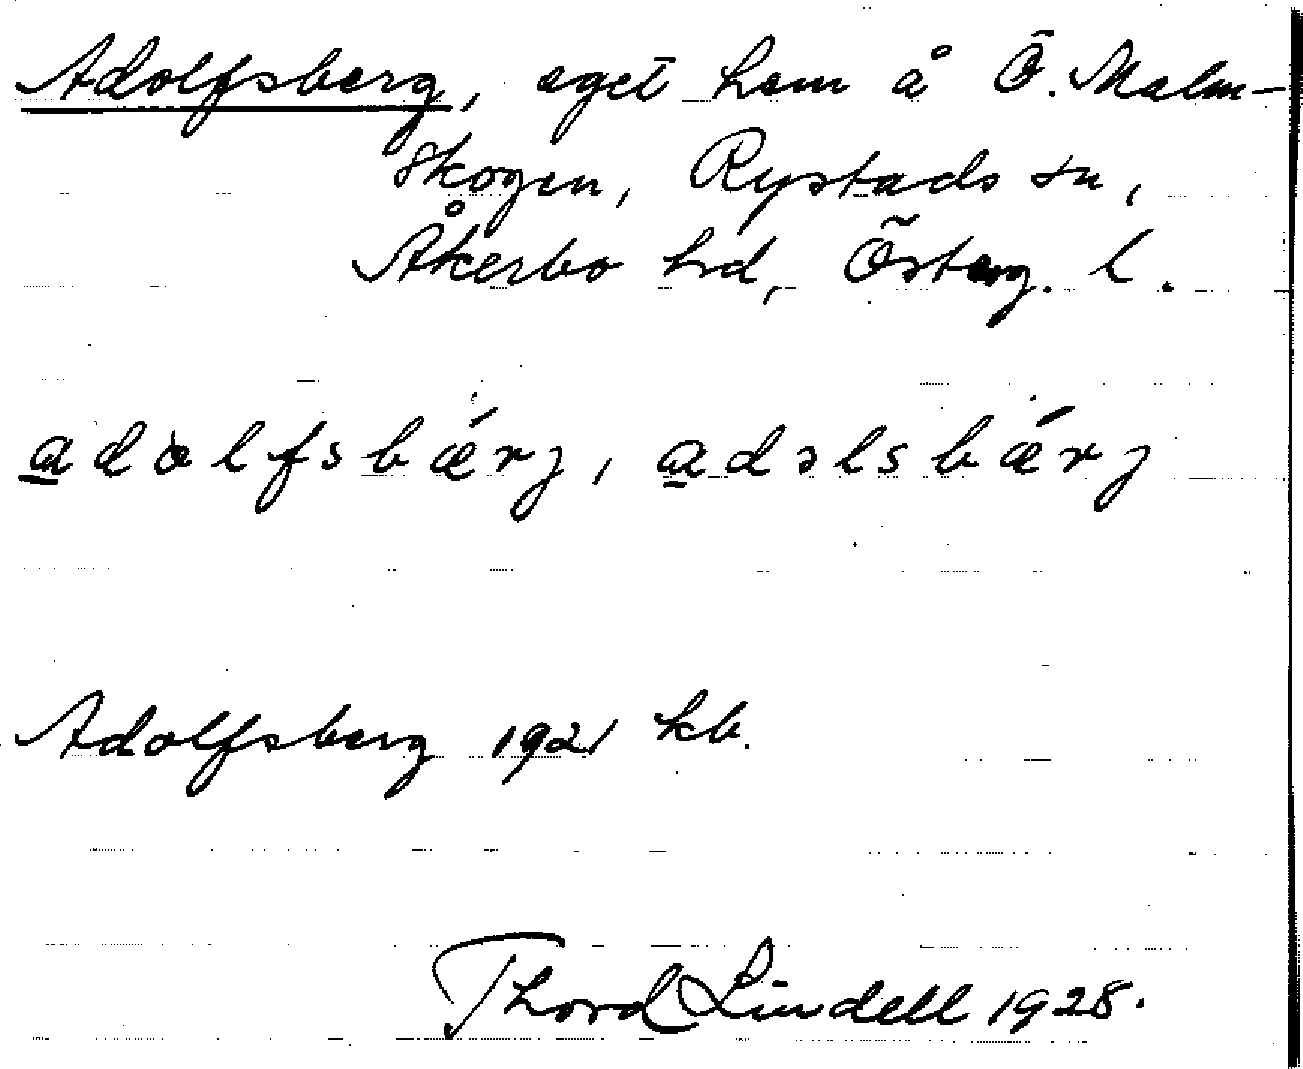 Adolfsberg, eget hem å Ö. Malm-
skogen, Rystads sn,
Åkerbo hd, Österg. l.
adolfsbǽrj, adəlsbǽrj
Adolfsberg 1921 kb.
Thord Lindell 1928.